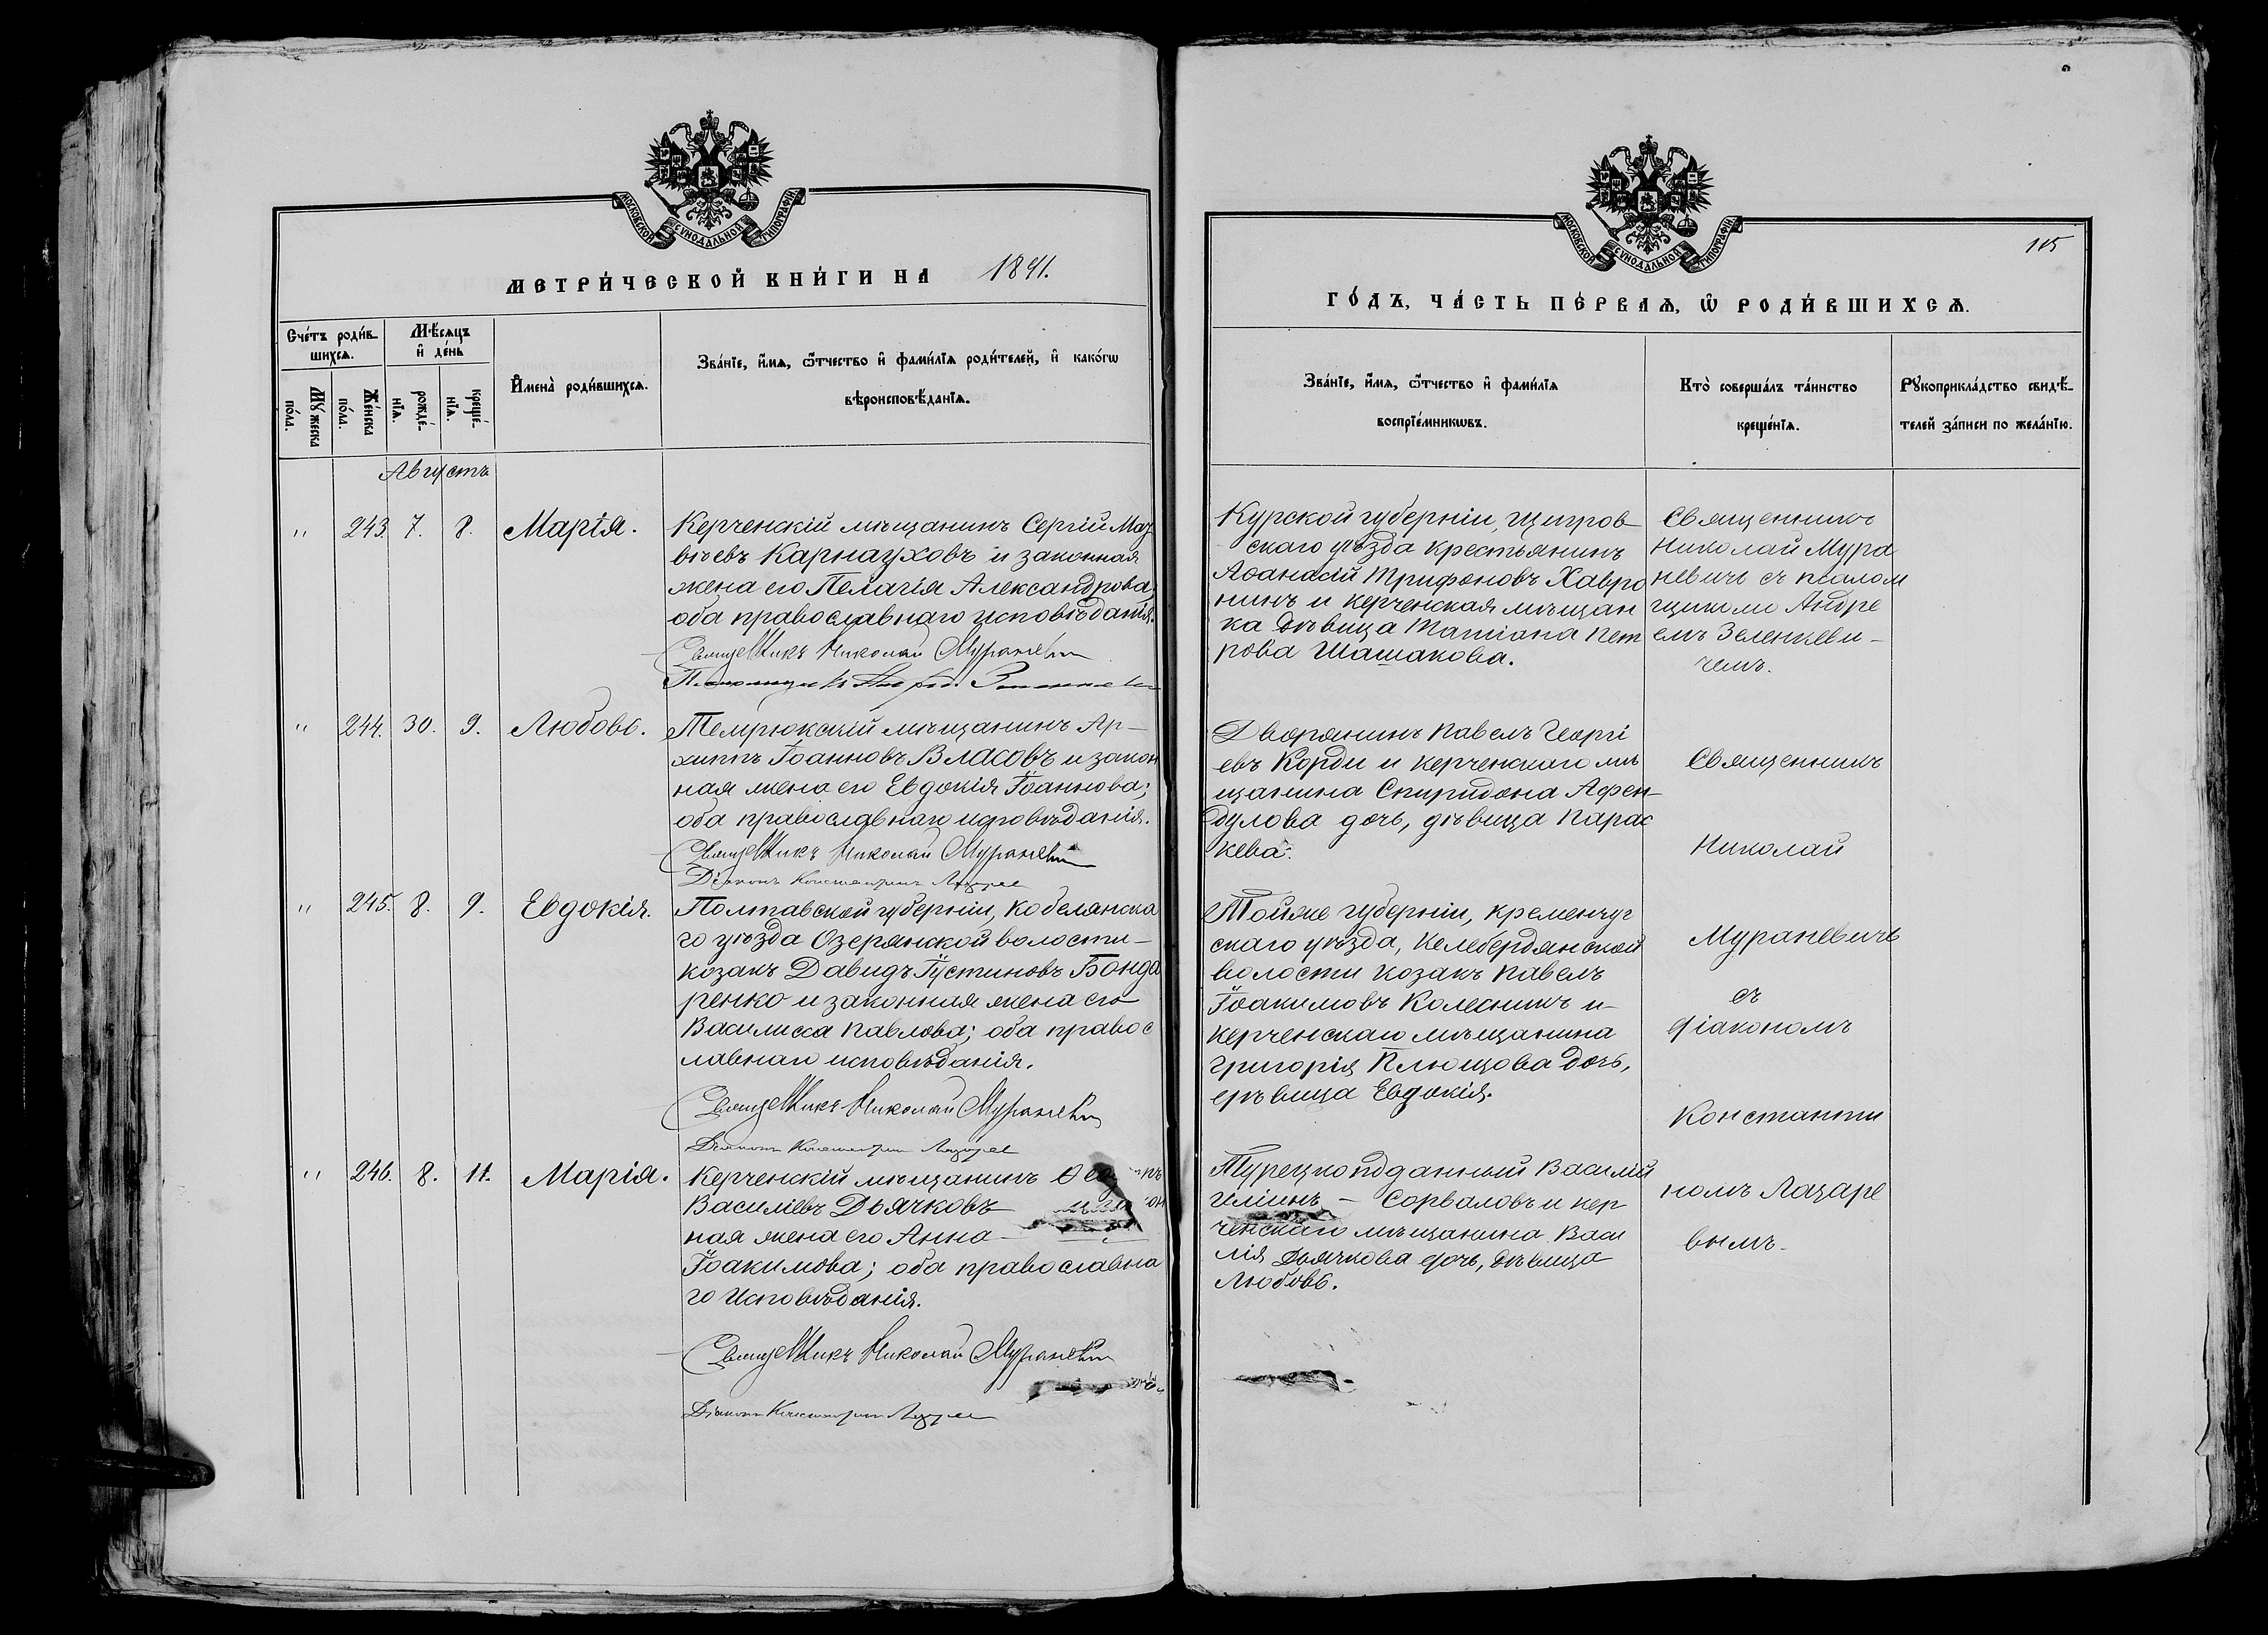 МОСКОВСКОЙ СѴНОДАЛЬНОЙ ТИПОГРАФІИ
МЕТРИ́ЧЕСКОЙ КНИ́ГИ НА 1891.
Сче́тъ роди́в-
шихсѧ.
Мѣ́сѧцъ
и҆ де́нь
Мꙋ́жеска
по́ла.
Же́нска
по́ла.
рожде́-
нїѧ.
креще́-
нїѧ.
И҆мена̀ роди́вшихсѧ.
Зва́нїе, и҆́мѧ, ѻ҆́тчество и҆ фами́лїѧ роди́телей, и҆ како́гѡ
вѣроисповѣ́данїѧ.
Августъ
" 243. 7. 8. Марія.
Керченскій мѣщанинъ Сергій Мат
вѣевъ Карнауховъ и законная
жена его Пелагія Александрова,
оба православнаго исповѣданія.
Священникъ Николай Мураневич
" 244. 30. 9. Любовь.
Темрюкскій мѣщанинъ Ар-
хиппъ Іоанновъ Власовъ и закон
ная жена его Евдокія Іоаннова;
оба православнаго исповѣданія.
Священникъ Николай Мураневич
Діаконъ Константинъ Лазарев
" 245. 8. 9. Евдокія.
Полтавской губерніи, Кобелянска
го уѣзда Озерянской волости-
козакъ Давидъ Іустиновъ Бонда
ренко и законная жена его
Василисса Павлова; оба правос
лавнаго исповѣданія.
Священникъ Николай Мураневич
Діаконъ Константинъ Лазарев
" 246. 8. 11. Марія.
Керченскій мѣщанинъ
Василіевъ Дьячковъ
ная жена его Анна-
Іоакимова; оба православна
го исповѣданія.
Священникъ Николай Мураневич
Діаконъ Константинъ Лазарев
МОСКОВСКОЙ СѴНОДАЛЬНОЙ ТИПОГРАФІИ
115
ГО́ДЪ, ЧА́СТЬ ПЕ́РВАѦ, Ѡ҆ РОДИ́ВШИХСѦ.
Зва́нїе, и҆́мѧ, ѻ҆́тчество и҆ фами́лїѧ
воспрїе́мникѡвъ.
Кто̀ соверша́лъ та́инство
креще́нїѧ.
Рꙋкоприкла́дство свидѣ́-
телей за́писи по жела́нїю.
Курской губерніи, Щигров-
скаго уѣзда крестьянинъ
Аѳанасій Трифоновъ Хавро
нинъ и керченская мѣщан
ка дѣвица Татіана Пет
рова Шашакова.
Священникъ
Николай Мура
невичъ съ псалом
щикомъ Андре
емъ Зеленкеви-
чемъ.
Дворянинъ Павелъ Георгі
евъ Корди и керченскаго мѣ
щанина Спиридона Афен-
дулова дочь, дѣвица Парас
кева.
Тойже губерніи, Кременчуг
скаго уѣзда, Келебердянской
волости козакъ Павелъ
Іоакимовъ Колесникъ и-
керченскаго мѣщанина
Григорія Плющова дочь,
дѣвица Евдокія.
Турецкоподданный Василій
Иліинъ - Сорваловъ и кер
ченскаго мѣщанина Васи
лія Дьячкова дочь, дѣвица
Любовь.
Священникъ
Николай
Мураневичъ
съ
діакономъ
Константи
номъ Лазаре
вымъ.